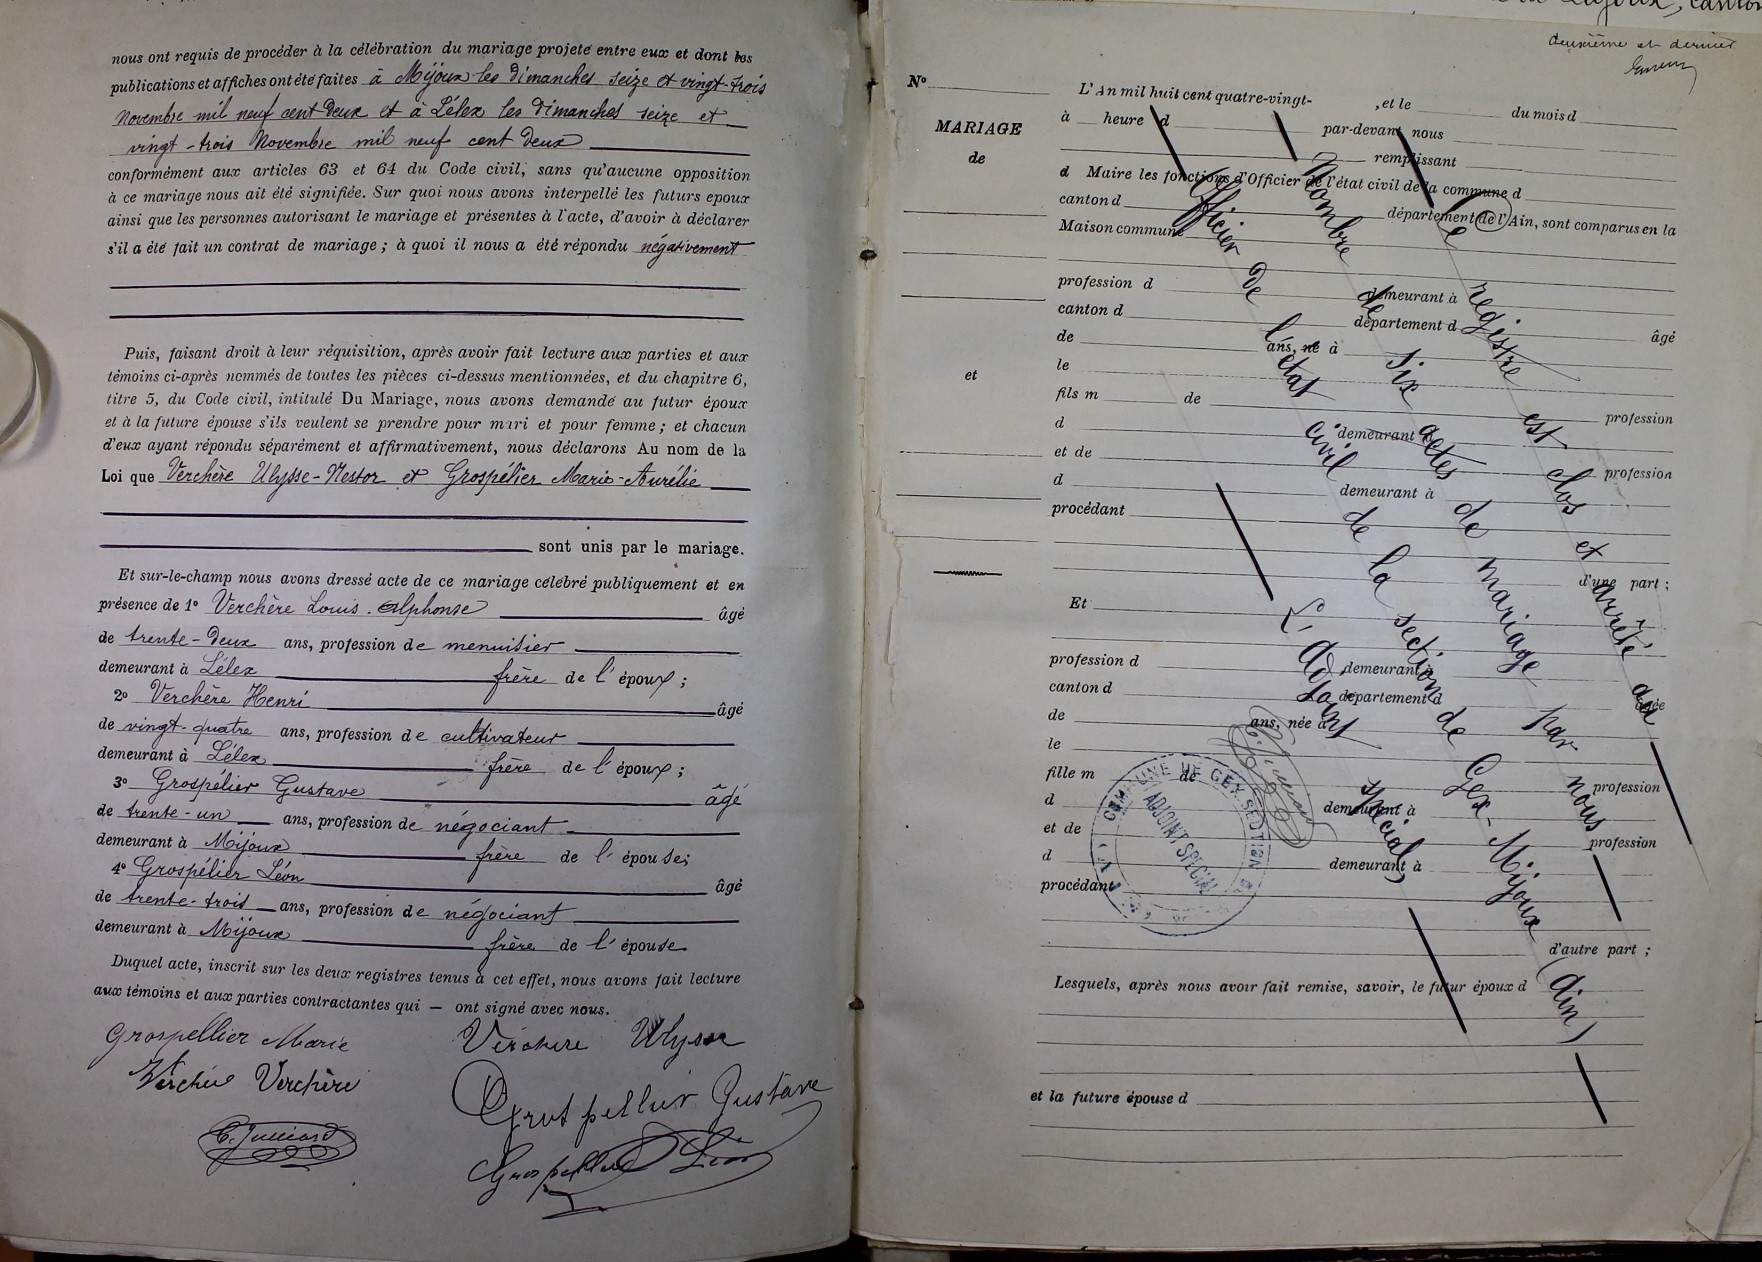 nous ont requis de procéder à la célébration du mariage projeté entre eux et dont les
publications et affiches ont été faites à Mijoux les dimanches seize et vingt-trois
Novembre mil neuf cent deux et à Lélex les dimanches seize et
vingt-trois Novembre mil neuf cent deux
conformément aux articles 63 et 64 du Code civil, sans qu'aucune opposition
à ce mariage nous ait été signifiée. Sur quoi nous avons interpellé les futurs époux
ainsi que les personnes autorisant le mariage et présentes à l'acte, d'avoir à déclarer
s'il a été fait un contrat de mariage ; à quoi il nous a été répondu négativement
Puis, faisant droit à leur réquisition, après avoir fait lecture aux parties et aux
témoins ci-après nommés de toutes les pièces ci-dessus mentionnées, et du chapitre 6,
titre 5, du Code civil, intitulé Du Mariage, nous avons demandé au futur époux
et à la future épouse s'ils veulent se prendre pour mari et pour femme ; et chacun
d'eux ayant répondu séparément et affirmativement, nous déclarons Au nom de la
Loi que Verchère Ulysse-Nestor et Grospélier Marie-Aurélie
sont unis par le mariage.
Et sur-le-champ nous avons dressé acte de ce mariage célébré publiquement et en
présence de 1° Verchère Louis-Alphonse âgé
de trente-deux ans, profession de menuisier
demeurant à Lélex frère de l'époux ;
2° Verchère Henri âgé
de vingt-quatre ans, profession de cultivateur
demeurant à Lélex frère de l'époux ;
3° Grospélier Gustave âgé
de trente-un ans, profession de négociant
demeurant à Mijoux frère de l'épouse ;
4° Grospélier Léon âgé
de trente-trois ans, profession de négociant
demeurant à Mijoux frère de l'épouse
Duquel acte, inscrit sur les deux registres tenus à cet effet, nous avons fait lecture
aux témoins et aux parties contractantes qui — ont signé avec nous.
Grospellier Marie Verchere Ulysse
Verchère Verchère
Grospellier Gustave
C. Julliard
Grospellier Léon
deuxième et dernier
N°
MARIAGE
de
et
L'An mil huit cent quatre-vingt- , et le du mois d
à heure d par-devant nous
remplissant
d Maire les fonctions d'Officier de l'état civil de la commune d
canton d département de l'Ain, sont comparus en la
Maison commune
profession d demeurant à
canton d département d âgé
de ans, né à
le
fils m de profession
d demeurant à
et de profession
d demeurant à
procédant
d'une part ;
Et
profession d demeurant à
canton d département d âgée
de ans, née à
le
fille m de profession
d demeurant à
et de profession
d demeurant à
procédant
d'autre part ;
Lesquels, après nous avoir fait remise, savoir, le futur époux d
et la future épouse d
Le registre est clos et arrêté au
Nombre de six actes de mariage par nous
Officier de l'état civil de la section de Gex-Mijoux (Ain)
L'adjoint spécial,
COMMUNE DE GEX SECTION
ADJOINT SPECIAL